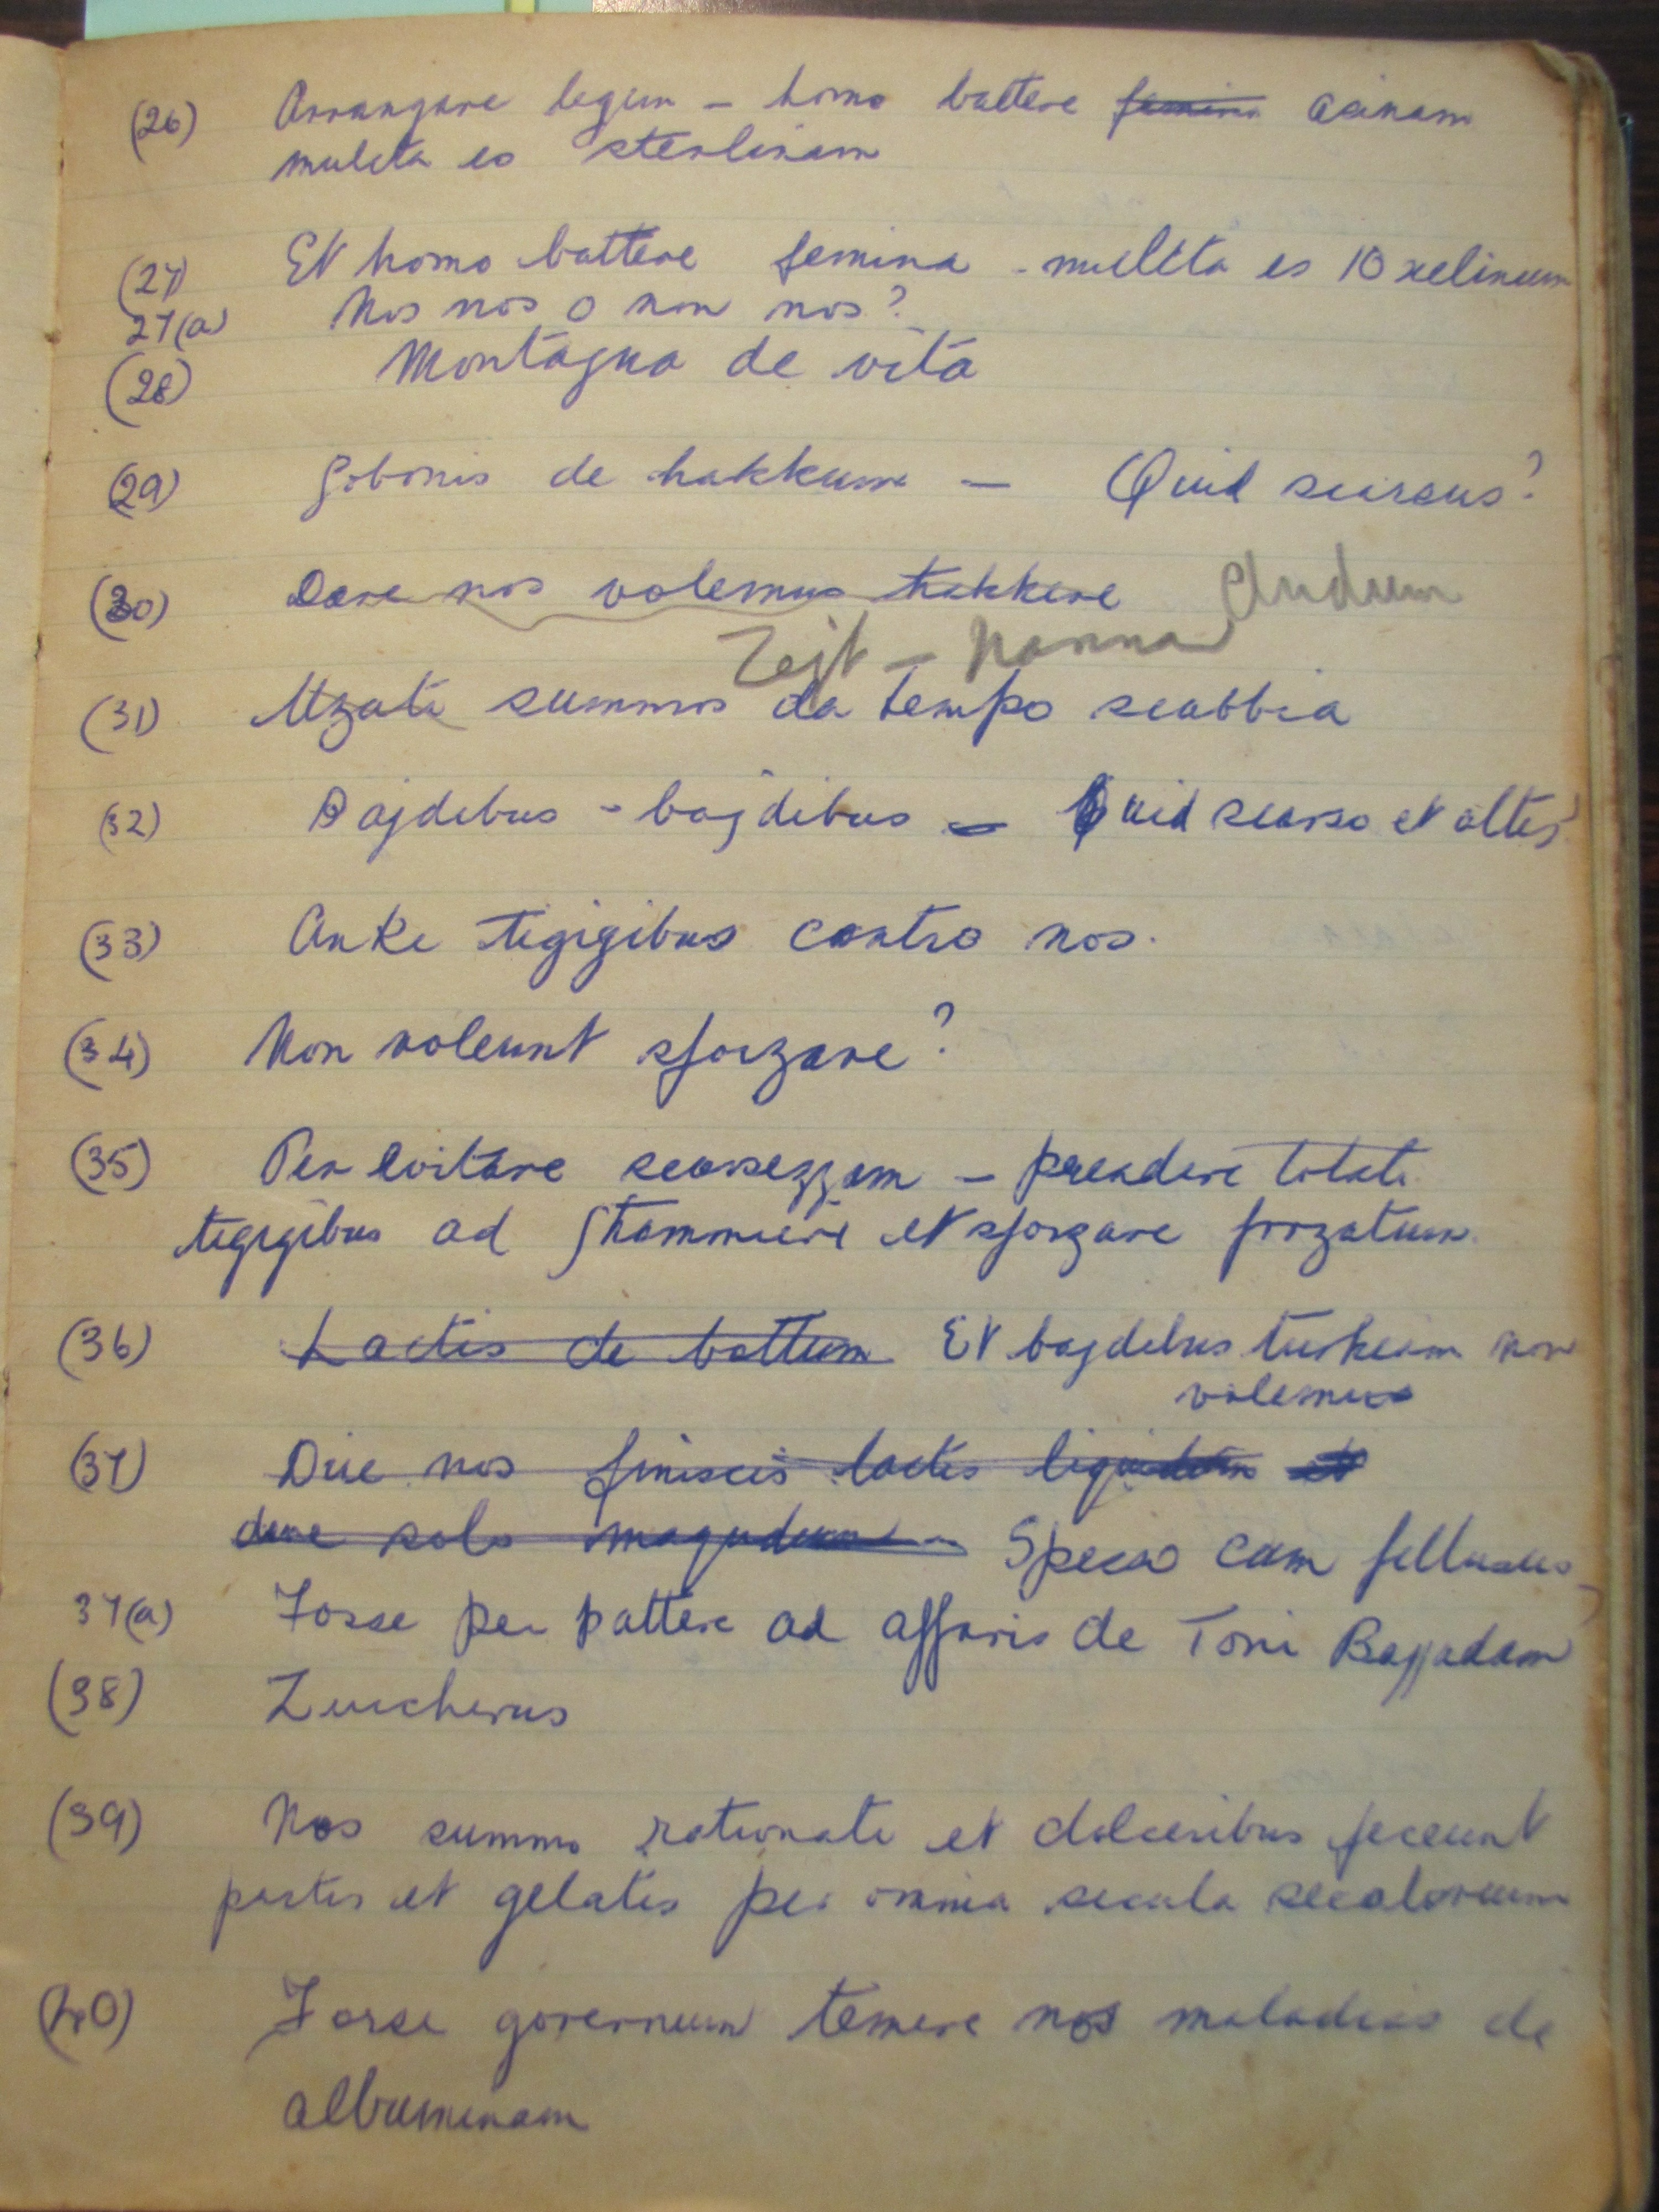 (26) Arrangare legum - homo battere femina asinam
multa es sterlinam
(27) Et homo battere femina - multta es 10 xelinum
27(a) Nos nos o non nos?
(28) Montagna de vita
(29) Gobonis de hakkum - Quid scarsus?
(30) Dare nos volemus hakkere Chudum
Zejt - Nanna
(31) Uzati summos da tempo scabbia
(32) Bajdebus - bajdibus - Quid scarso et altis
(33) Anke tigigibus contro nos.
(34) Non voleunt sforzare?
(35) Per evitare scarsezzam - prendere totati
tigigibus ad Shammieri et sforzare forzatum.
(36) Lactis de bottum Et bajdebus turkeam non
volemus
(37) Dice nos finiscis lactis liquidum et
dare solo magudum - Specso cum fellusus
37(a) Forse per battere ad affaris de Toni Bajjadam
(38) Zuccherus
(39) Nos summo rationati et dolceribus feceunt
pastis et gelatis per omnia secula secolorum
(40) Forse governum temere nos maladias de
albuminam